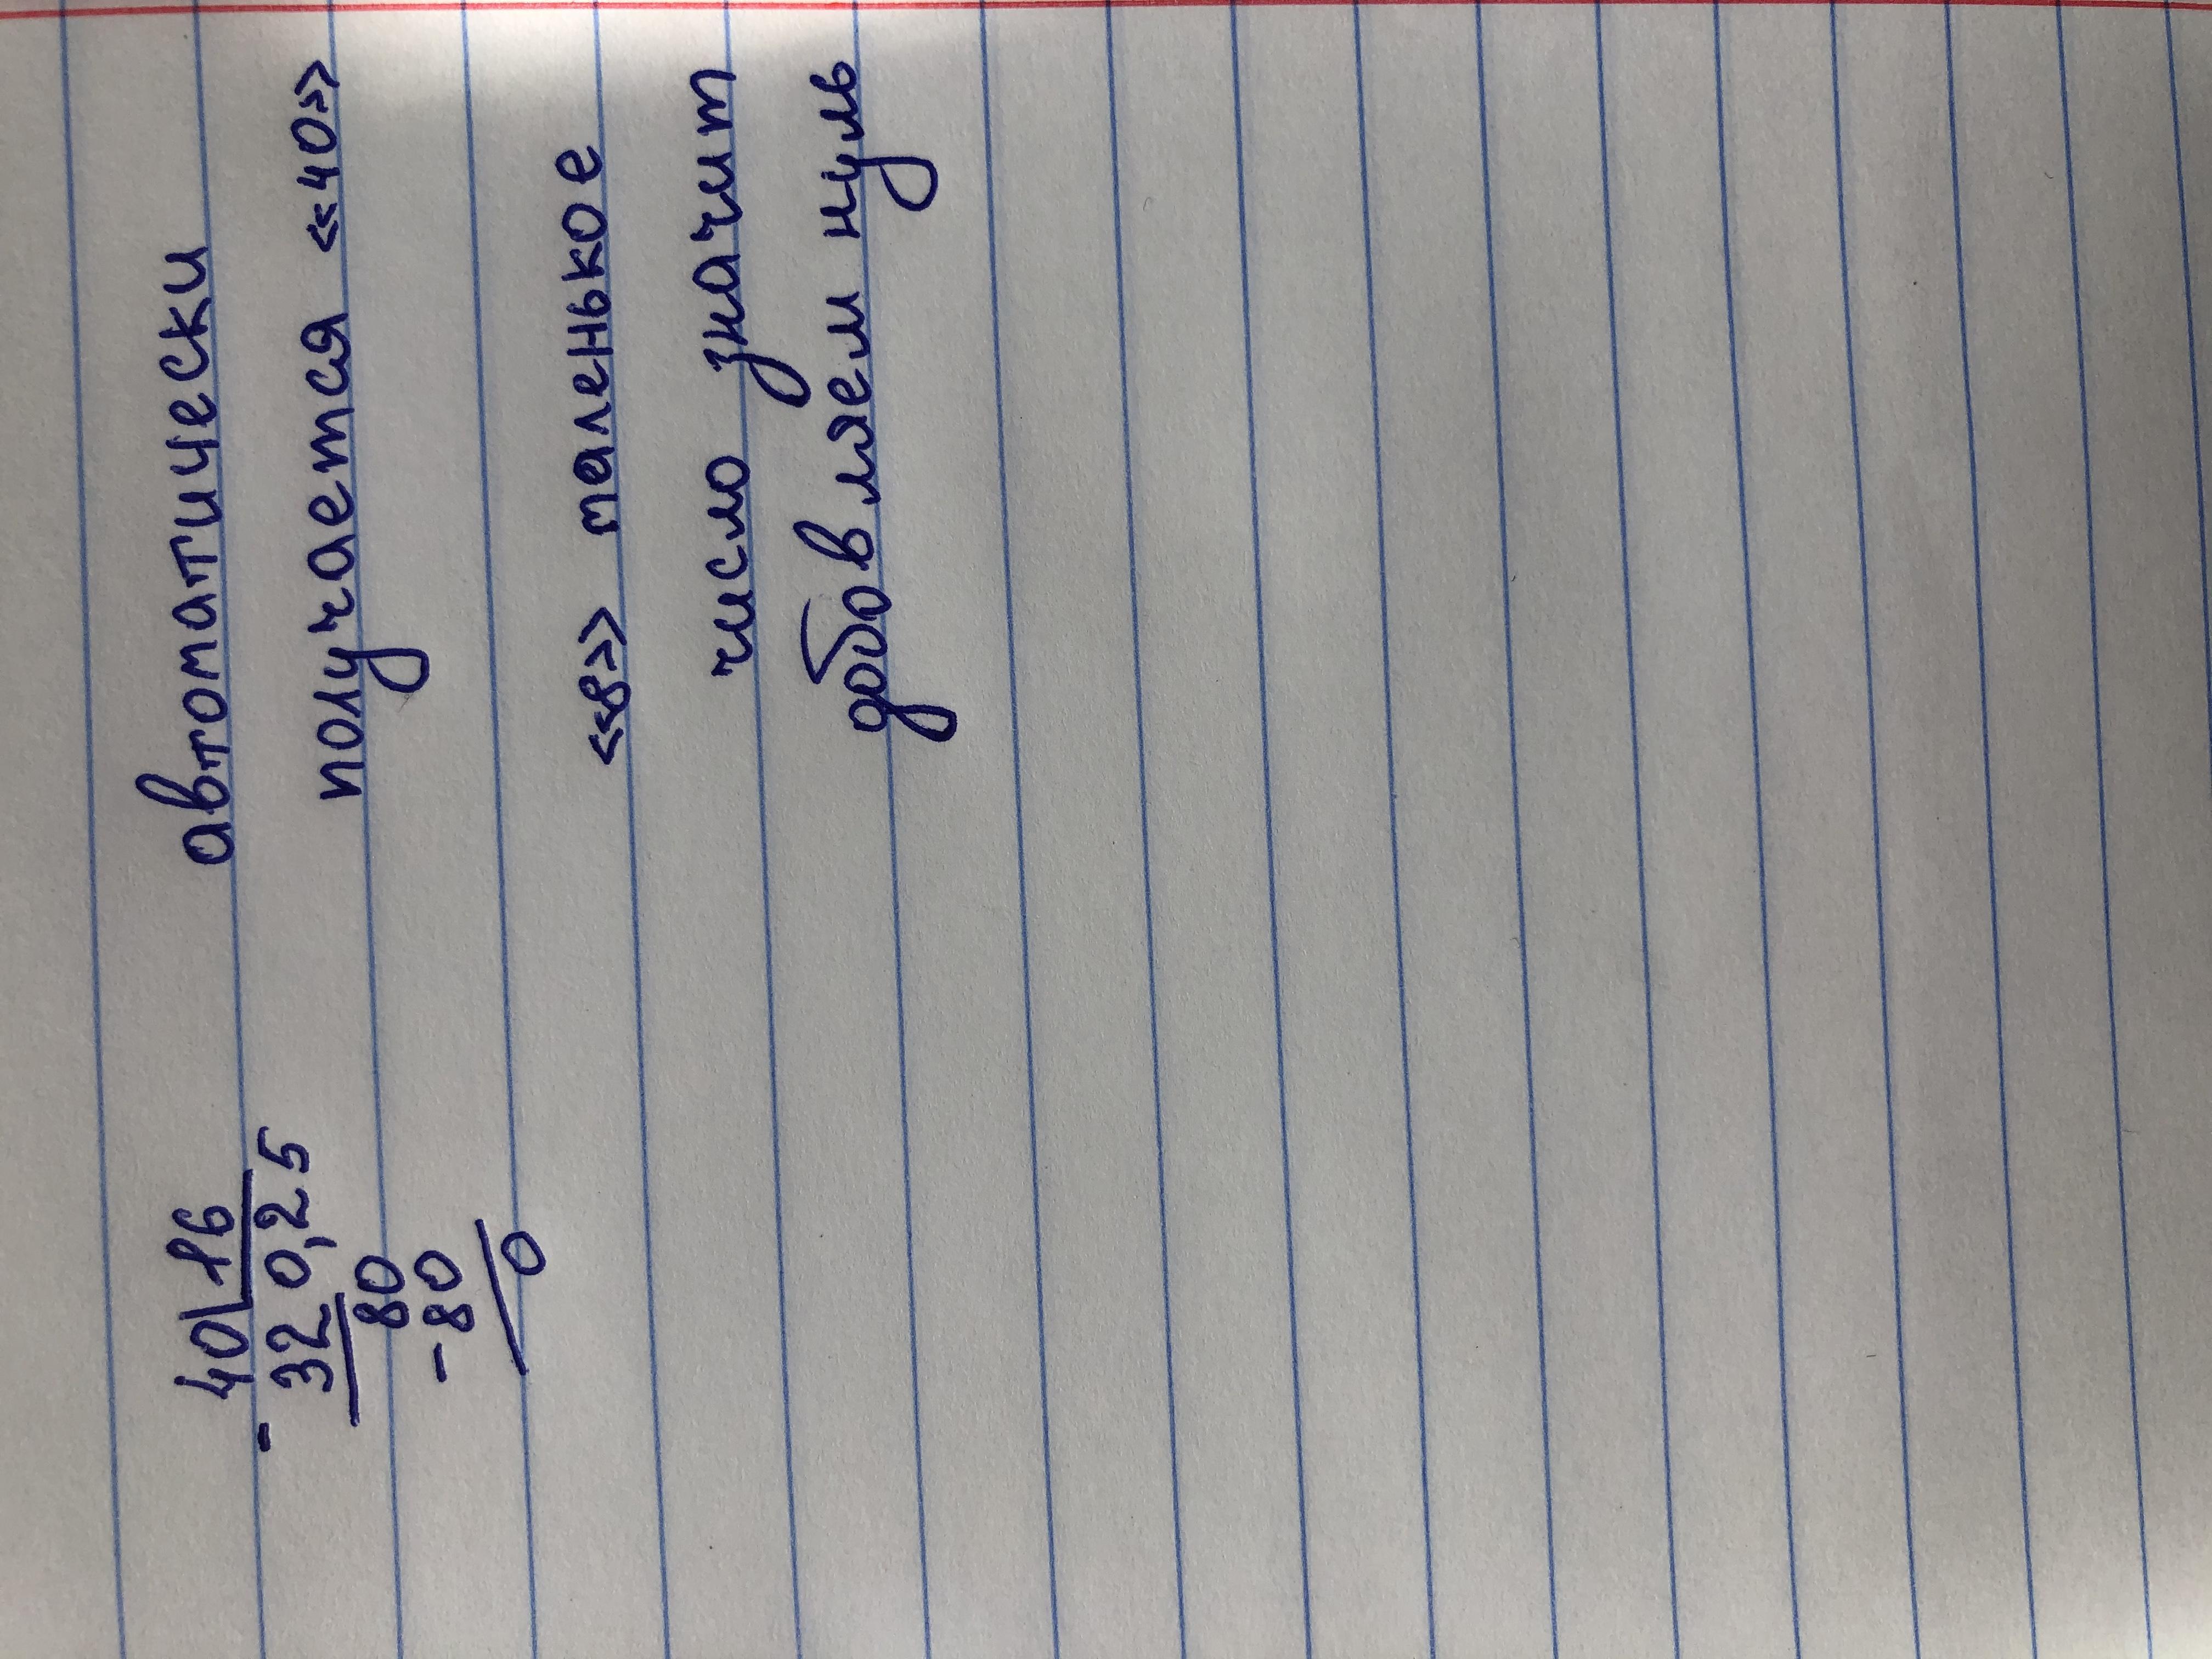 40 16 автоматически
- 32 0,25 получается «40»
80
- 80
0 «8» маленькое
число значит
добовляем нуль